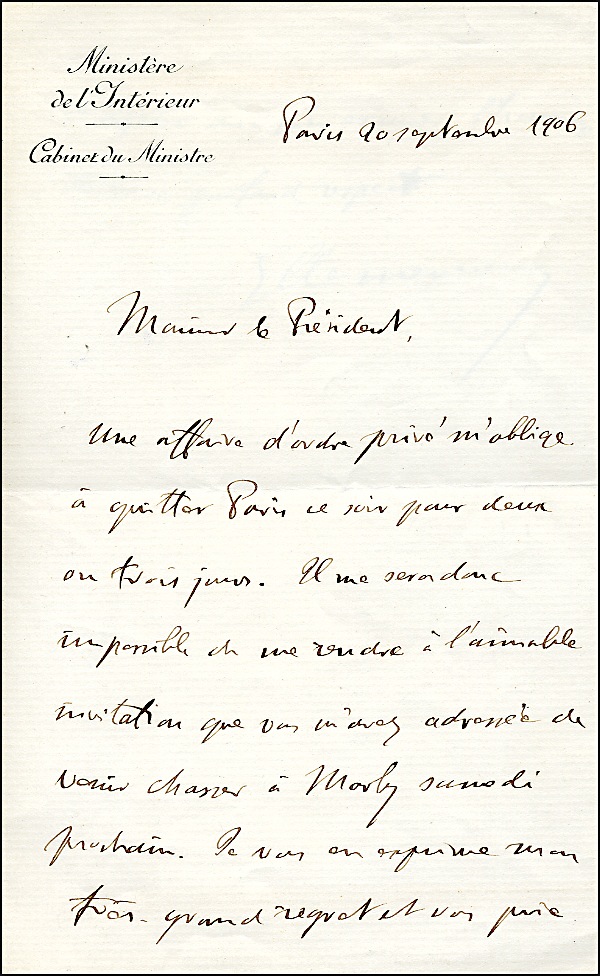 Ministère
de l'Intérieur
Cabinet du Ministre
Paris 20 septembre 1906
Monsieur le Président,
Une affaire d'ordre privé m'oblige
à quitter Paris ce soir pour deux
ou trois jours. Il me sera donc
impossible de me rendre à l'aimable
invitation que vous m'avez adressée de
venir chasser à Marly samedi
prochain. Je vous en exprime mon
très grand regret et vous prie